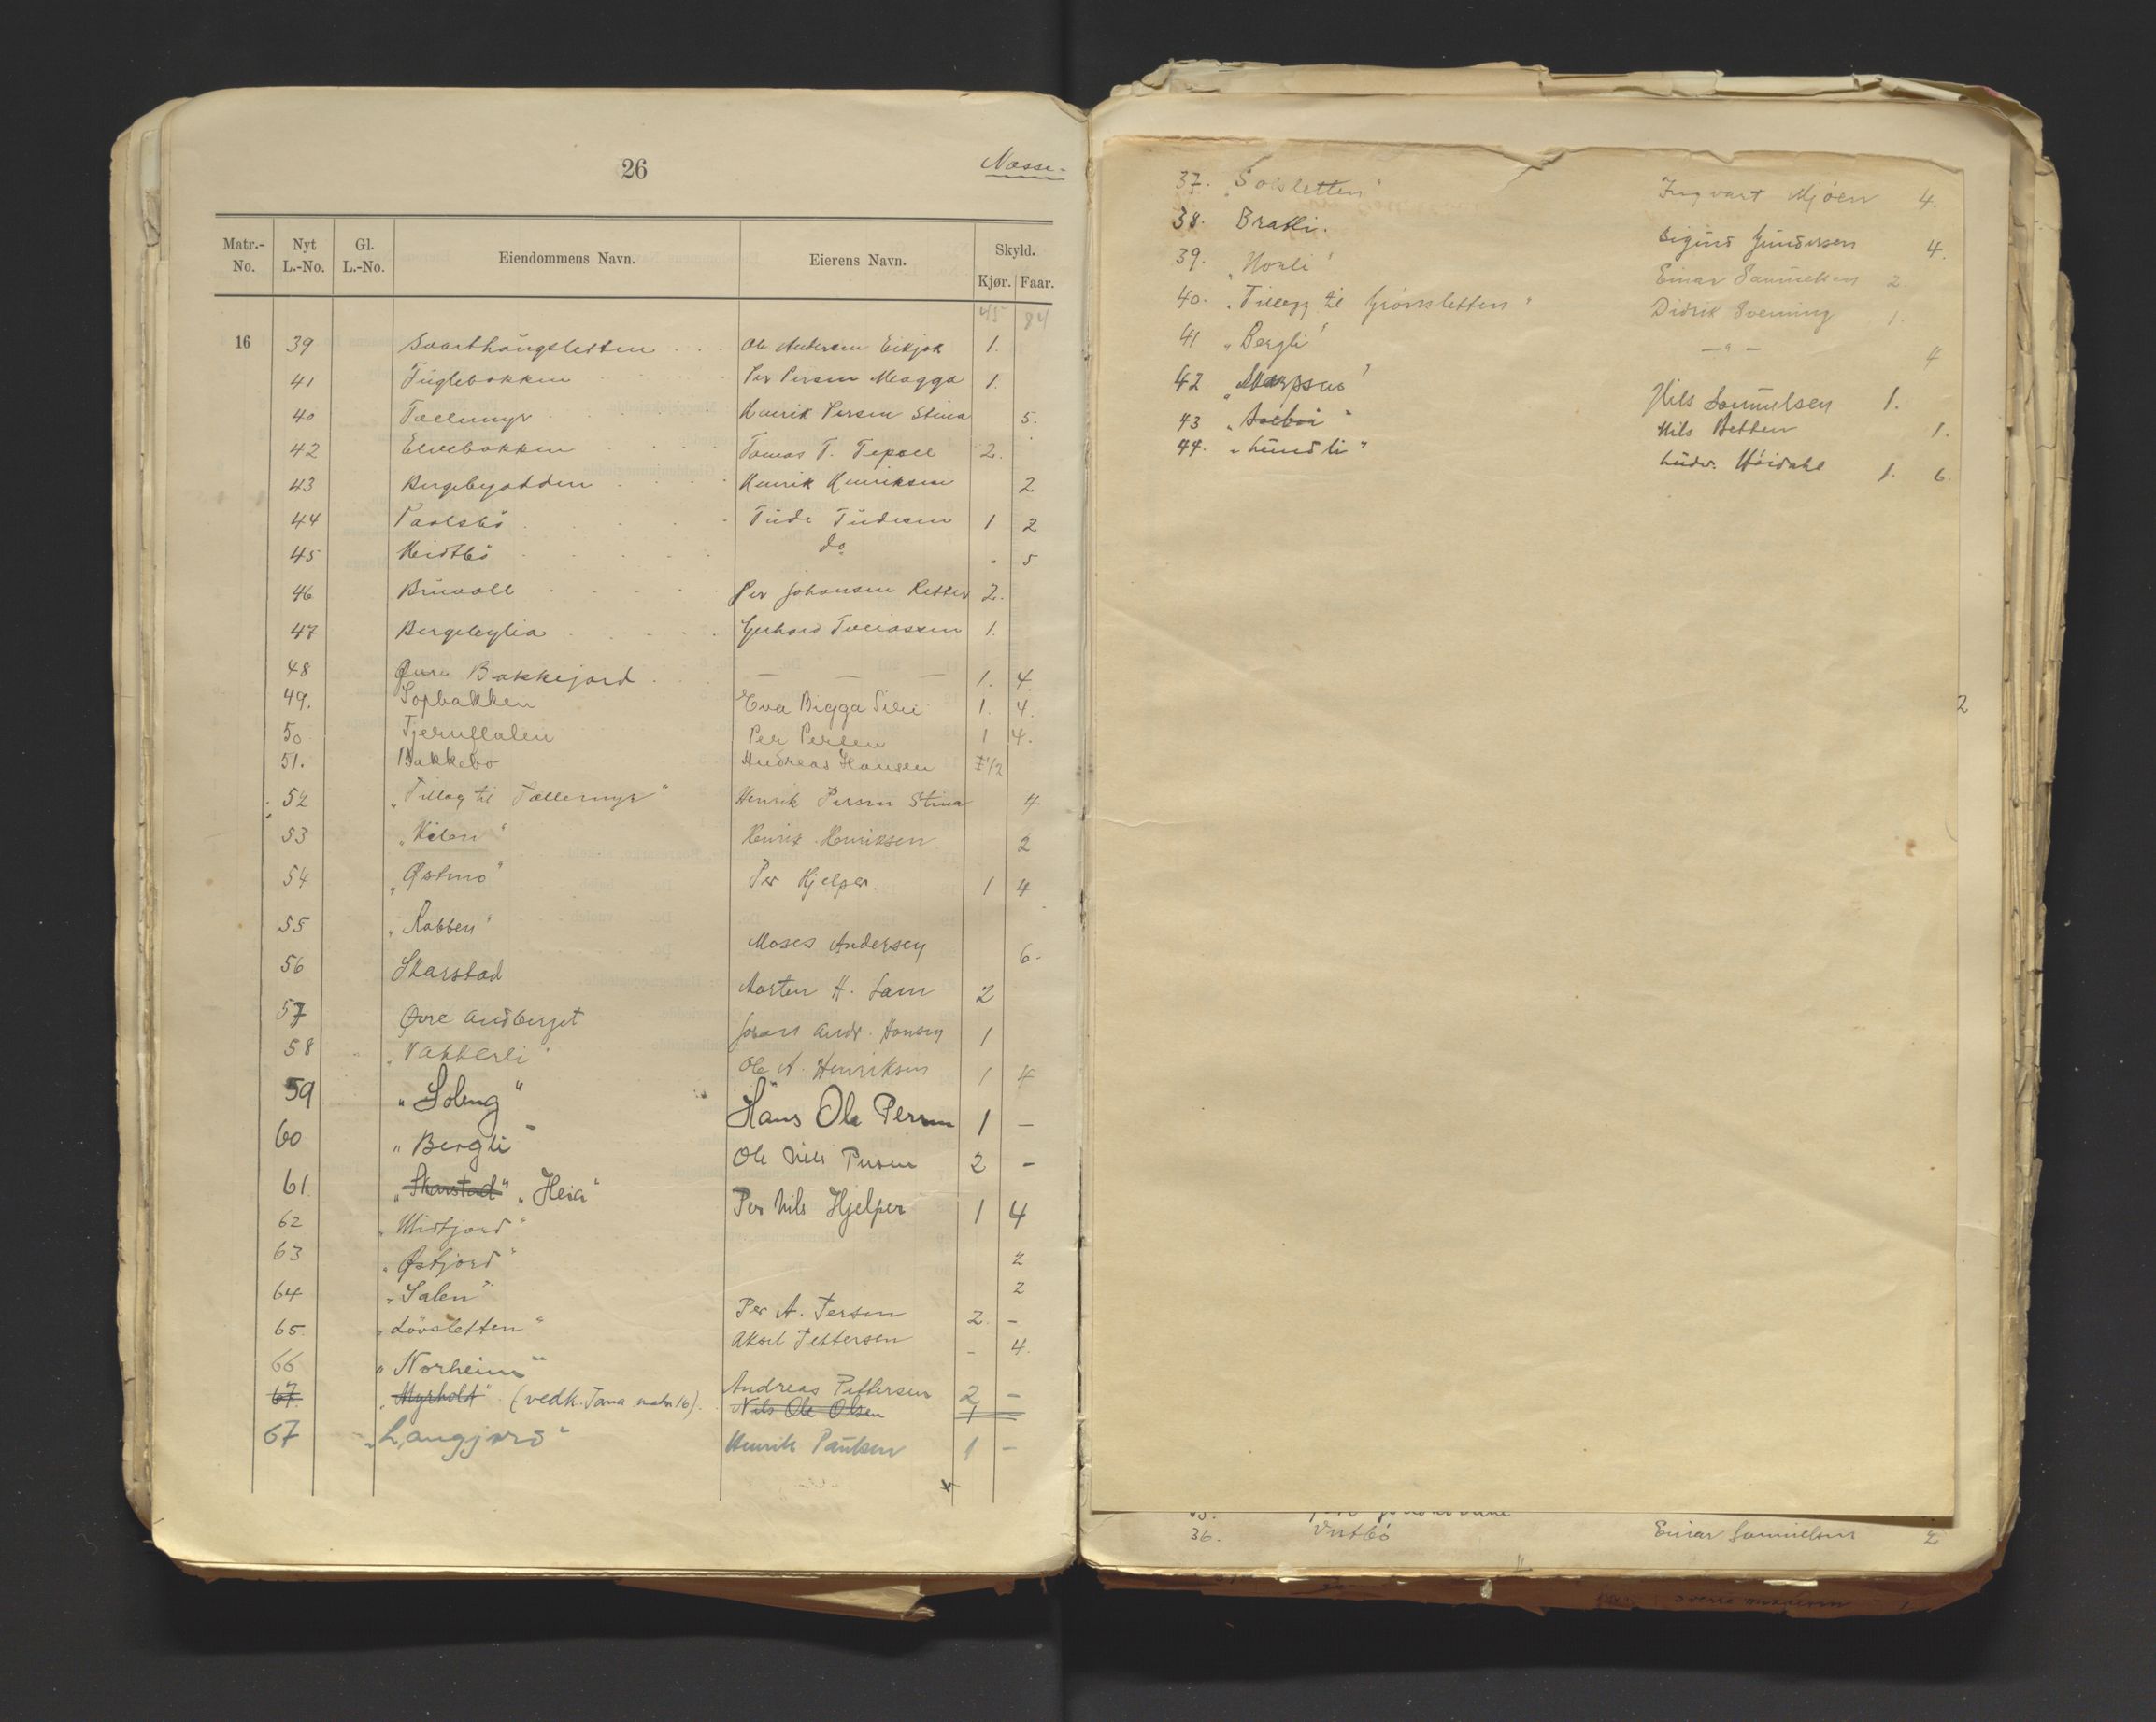 26
Nasse-
Matr.-No. Nyt L.-No. Gl. L.-No. Eiendommens Navn. Eierens Navn. Skyld. Kjør. Faar.
45 84
16 39 Svarthaugsletten Ole Andersen Eikjok 1.
41 Fuglebakken Per Persen Magga 1.
40 Tællemyr Henrik Persen Stina 5.
42 Elvebakken Tomas T. 2.
43 Bergebyodden Henrik Henriksen 2
44 Paulsbö Tude Tudesen 1 2
45 do 5
46 Bruvoll Per Johansen 2.
47 Bergebylia Gerhard 1.
48 Øvre Bakkejord — — — 1. 4.
49. Sopbakken Eva Bigga Siri 1. 4.
50 Per Persen 1 4.
51. Bakkebo Andreas Hansen 1/2
52 „Tillæg til Tællemyr" Henrik Persen Stina 4.
53 Henrik Henriksen 2
54 „Østmo" Per Hjelper. 1 4
55 „Rabben" Moses Andersen 6.
56 Skarstad Morten H. 2
57 Øvre Andberget Johan Andr. Hansen 1
58 „Vakkerli" Ole A. Henriksen 1 4
59 „Soleng" Hans Ole Persen 1 —
60 „Bergli" Ole Nils Persen 2 -
61 „Skarstad" „Heia" Per Nils Hjelper 1 4
62 „Midtjord" 2
63 „Østjord" 2
64 „Salen" Per A. Persen 2 -
65 „Løvsletten" Aksel Pettersen - 4.
66 „Norheim" Andreas Pettersen 2 -
67. „Myrholt" (vedk. Tana matr. 16). Nils Ole Olsen 1
67 „Langjord" Henrik Paulsen 1 —
37. „Solsletten" Ingvart Mjöen 4.
38. Bratli. Sigurd Gundersen 4.
39. „Norli" Einar Samuelsen 2.
40. „Tillegg til Grønsletten" Didrik Svenning 1.
41 „Bergli" — " — 4
42 „Skarpsno" Nils Samuelsen 1.
43 „Solbo" Nils Betten 1.
44. „Lundli" Ludv. Höidahl 1. 6
2
36. Vestbö Einar Samuelsen 2